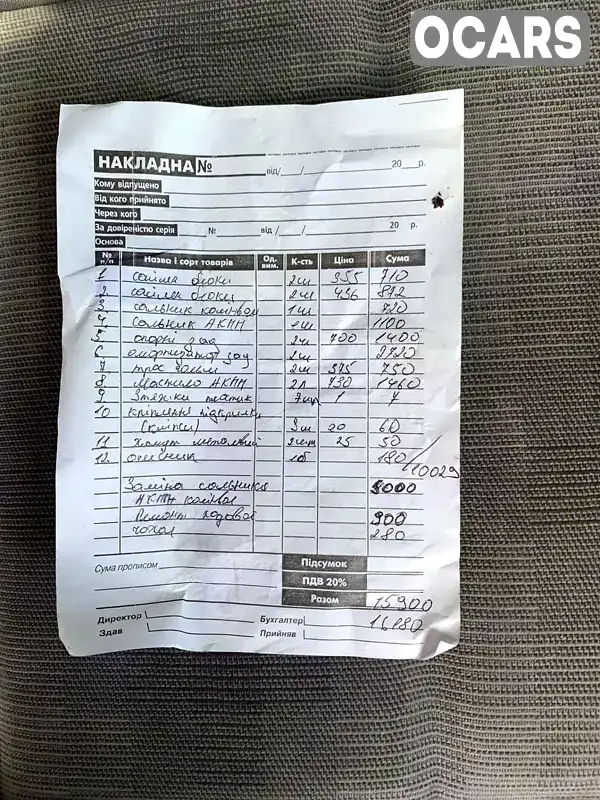 OCARS
НАКЛАДНА №
від / / 20 р.
Кому відпущено
Від кого прийнято
Через кого
За довіреністю серія № від / / 20 р.
Основа
№ п/п Назва і сорт товарів Од. вим. К-сть Ціна Сума
1 сайлен блоки 2шт 355 710
2 сайлен блоки 2шт 436 872
3 сальник 1шт 720
4 Сальник АКПП 1шт 1100
5 опори зад 2шт 700 1400
6 амортизатор зад 2шт 2720
7 трос 2шт 375 750
8 Мастило АКПП 2л 730 1460
9 Стяжки пластик 7шт 1 7
10 Кріплення підкрилки
(кліпси) 3шт 20 60
11 Хомут металевий 2шт 25 50
12 очисник 1б 180 / 10029
Заміна сальника
АКПП
Ремонт ходової 900
чохол 280
Сума прописом
Підсумок
ПДВ 20%
Разом 15900
Директор Бухгалтер 16180
Здав Прийняв